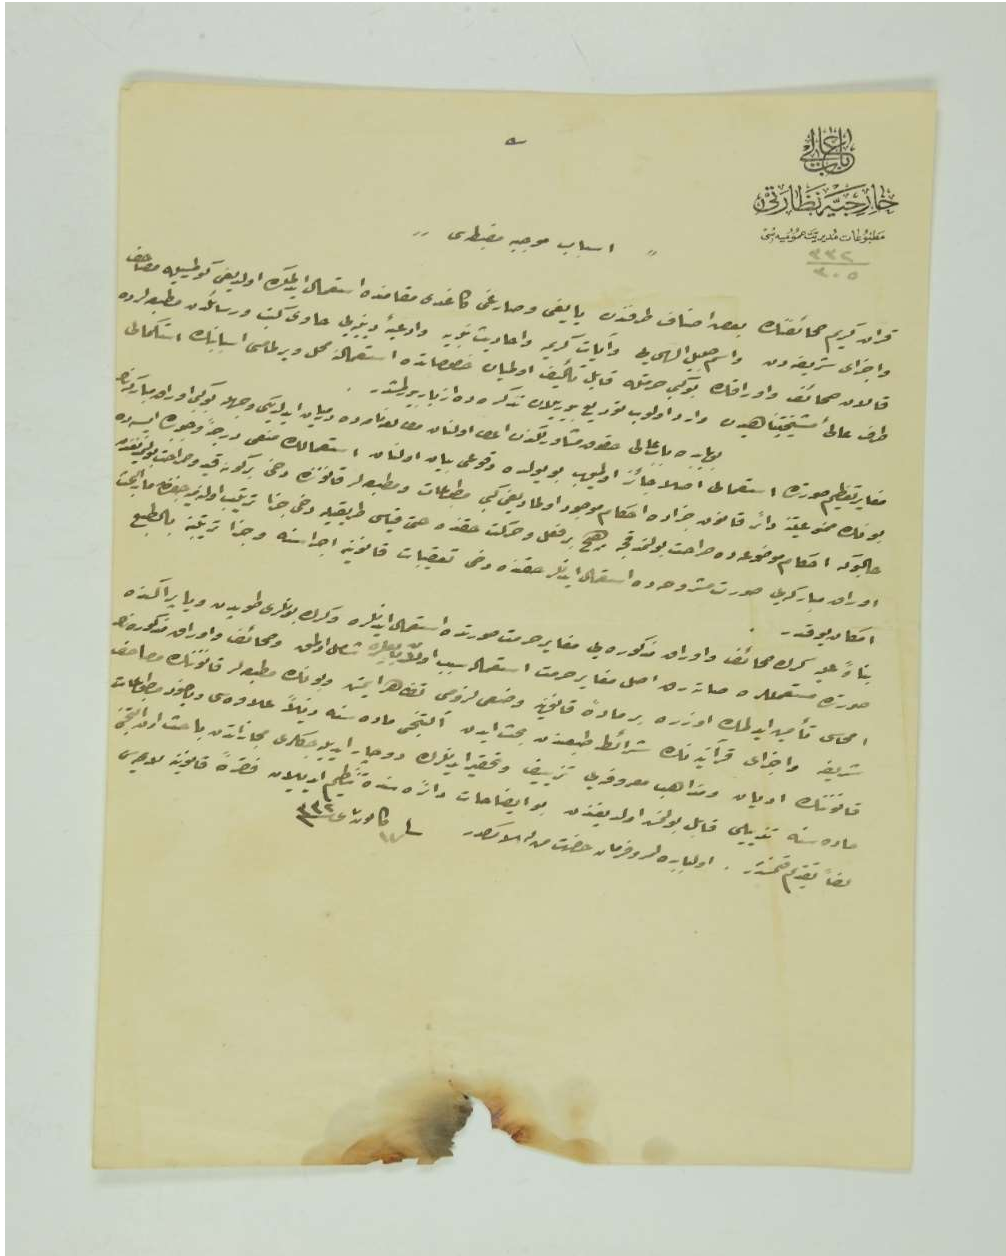 باب عالی
خارجیه نظارتی
مطبوعات مدیریت عمومیه سی
٣٣٢
٣٠٥
اسباب موجبه مضبطه سی
قرآن کریم صحائفنك بعض اصناف طرفندن یاپیشقان وصارغی کاغدی مقامنده استعمال ایدلمکده اولدیغی کورلمسیله مصاحف
واجزای شریفه دن واسم جلیل الهی یی وآیات کریمه واحادیث نبویه وادعیهٔ دینیه یی حاوی کتب ورسائلدن مطبعه لرده
قالان صحائف واوراقك بویله حرمته قابل تألیف اولمیان خصوصاتده استعمالنك منعی اسبابنك استکمالی
طرف عالیٔ مشیختپناهیدن وارد اولوب تودیع بیوریلان تذکره ده ازبار بیورلمشدر .
باب عالی حقوق مشاورلکندن اعطا اولنان مطالعه نامه ده درمیان ایدلدیکی وجهله بوکبی اوراق مبارکه نك
مغایر تعظیم صورتده استعمالی اصلا جائز اولمیوب بو یولده وقوعی بیان اولنان استعمالك منعی درجهٔ وجوبده ایسه ده
بونك ممنوعیتنه دائر قانون جزاده احکام موجود اولمادیغی کبی مطبوعات ومطبعه لر قانوننده دخی برکونه قید وصراحت بولنمدیغندن
احکام موضوعه ده صراحت بولنمدقجه هیچ بر فعل وحرکت حقنده حتی قیاس طریقیله دخی جزا ترتیب اولنه میه جغندن
اوراق مبارکه یی صورت مشروحه ده استعمال ایدنلر حقنده دخی تعقیبات قانونیه اجراسنه وجزا ترتیبنه بالطبع
امکان یوقدر .
بناءً علیه کرك صحائف واوراق مذکوره یی مغایر حرمت صورتده استعمال ایدنلره وکرك بونلری طوپدن ویا پراکنده
صورتده مستعمللره صاتارق اصل مغایر حرمت استعماله سبب اولانلره شامل اولمق وصحائف واوراق مذکوره نك
امحاسی تأمین ایدلمك اوزره بر مادهٔ قانونیه وضعی لزومی تظاهر ایتمش وبونك مطبعه لر قانوننك مصاحف
شریفه واجزای قرآنیه نك شرائط طبعندن بحث ایدن التنجی ماده سنه ذیلاً علاوه سی ویاخود مطبوعات
قانوننك ادیان ومذاهب معروفه یی تزییف وتحقیر ایدنلرك دوچار ایدیله جکلری مجازاتدن باحث اون التنجی
ماده سنه تذییلی قابل بولنمش اولدیغندن بو ایضاحات دائره سنده تنظیم ایدیلان فقرهٔ قانونیه لایحه سی
لفاً تقدیم قلنمشدر . اولبابده امر وفرمان حضرت من له الامرکدر
کانون ثانی ٣٣٢